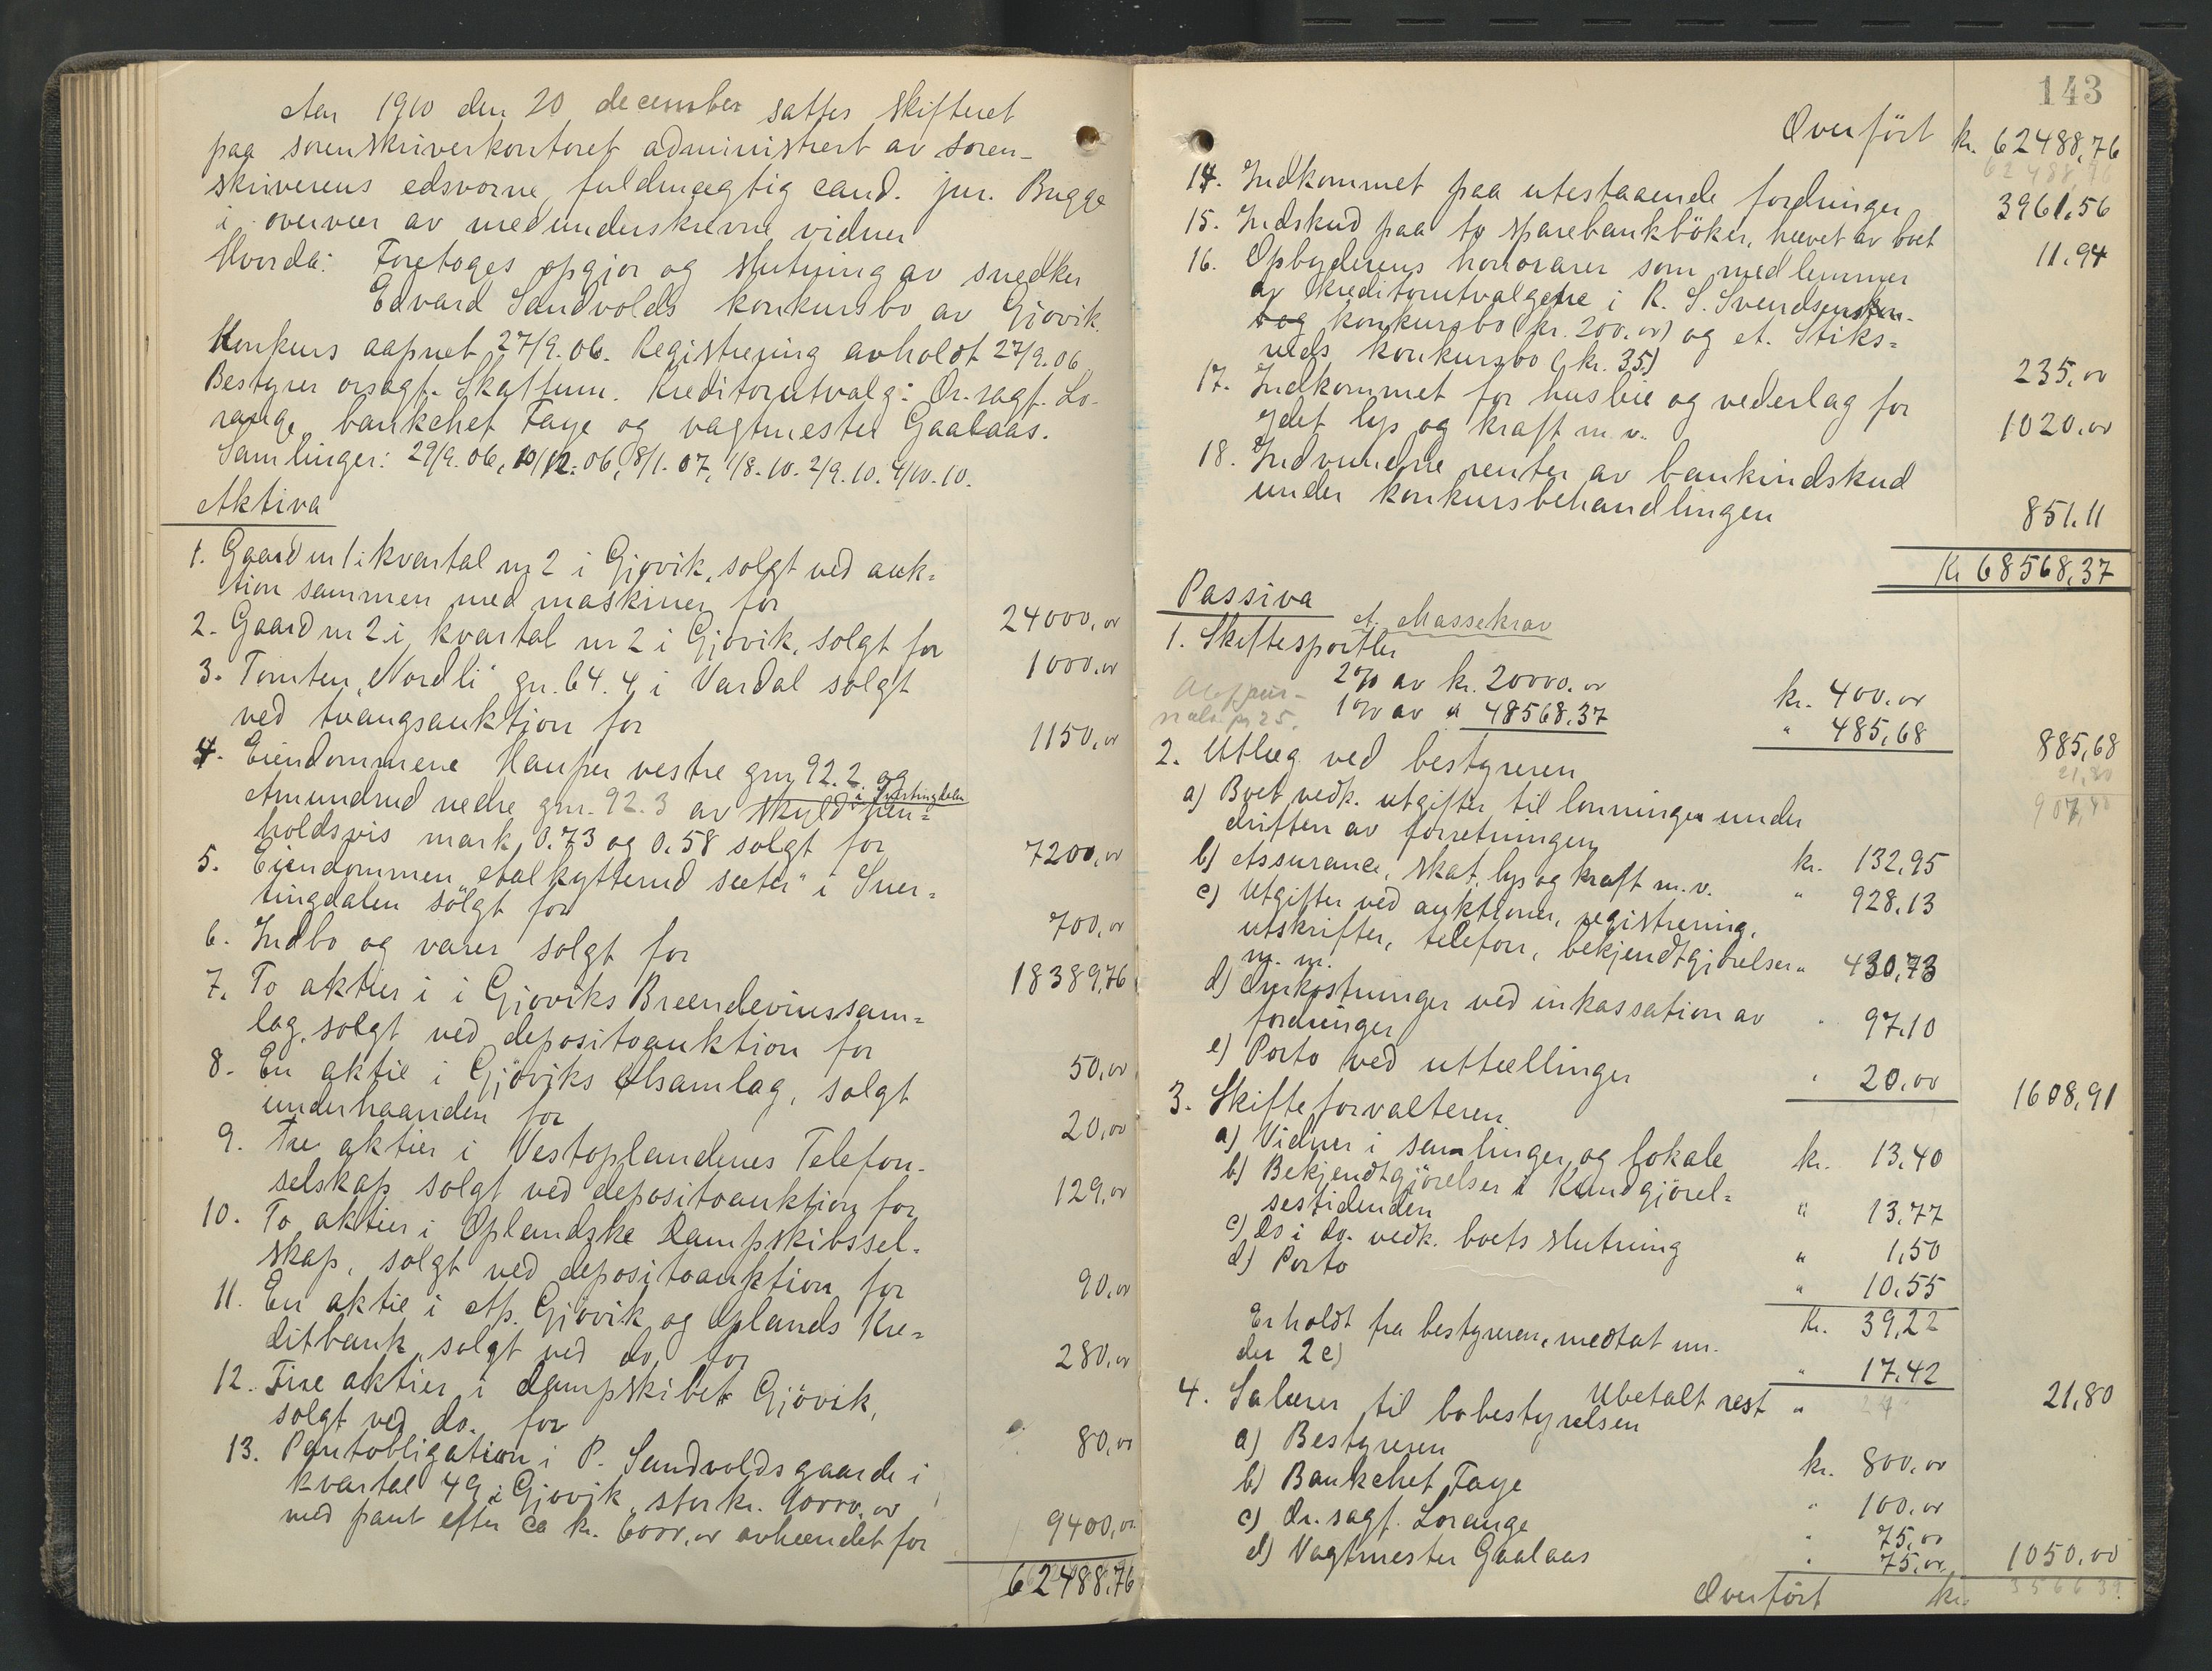 Aar 1910 den 20 december sattes skifteret
paa sorenskriverkontoret administrert av soren-
skriverens edsvorne fuldmægtig cand. jur. Bugge
i overvær av medunderskrevne vidner
Hvorda: Foretoges opgjør og slutning av snedker
Edvard Sandvolds konkursbo av Gjøvik.
Konkurs aapnet 27/9.06. Registrering avholdt 27/9.06
Bestyrer orsagf. Skattum. Kreditorutvalg: Or.sagf. Lo-
range, bankchef Faye og vagtmester Gaalaas.
Samlinger: 29/9.06, 10/12.06, 8/1.07, 1/8.10. 2/9.10. 4/10.10.
Aktiva
1. Gaard nr 1 i kvartal nr 2 i Gjøvik, solgt ved auk=
tion sammen med maskiner for 24000,00
2. Gaard nr 2 i kvartal nr 2 i Gjøvik, solgt for 1000,00
3. Tomten "Nordli" gn. 64.4 i Vardal solgt
ved tvangsauktion for 1150,00
4. Eiendommene Haugen vestre gnr 92.2 og
i Snertingdalen
Amundrud nedre gnr. 92.3 av skyld hen=
holdsvis mark 0.73 og 0.58 solgt for 7200,00
5. Eiendommen sæter" i Sner=
tingdalen solgt for 700,00
6. Indbo og varer solgt for 18389,76
7. To aktier i i Gjøviks Brændevinssam=
lag, solgt ved depositoauktion for 50,00
8. En aktie i Gjøviks Ølsamlag, solgt
underhaanden for 20,00
9. Tre aktier i Vestoplandenes Telefon-
selskap solgt ved depositoauktion for 129,00
10. To aktier i Oplandske Dampskibssel-
skap, solgt ved depositoauktion for 90,00
11. En aktie i Ap. Gjøvik og Oplands Kre=
ditbank, solgt ved do. for 280,00
12. Fire aktier i dampskibet Gjøvik,
solgt ved do. for 80,00
13. Pantobligation i P. Sandvolds gaarde i
kvartal 49 i Gjøvik, stor kr. 10000,00
med pant efter ca kr. 6000,00 avhændet for 9400,00
62488,76
143
Overført kr. 62488,76
62488,76
14. Indkommet paa utestaaende fordringer 3961,56
15. Indskud paa to sparebankbøker, hævet av boet 11.94
16. Opbyderens honorarer som medlemmer
av kreditorutvalgene i R. S. Svendsens kon-
konkursbo (kr. 200.00) og A. Stiks=
ruds konkursbo (kr. 35) 235,00
17. Indkommet for husleie og vederlag for
ydet lys og kraft m.v. 1020.00
18. Indvundne renter av bankindskud
under konkursbehandlingen 851.11
Kr 68568,37
Passiva
A. Massekrav
1. Skiftesportler
2% av kr. 20000.00 kr. 400.00
1% av " 48568.37 " 485,68 885,68
21,80
907,48
2. Utlæg ved bestyreren
a) Boet vedk. utgifter til lønninger under
driften av forretningen kr. 132,95
b) Assurance, skat, lys og kraft m.v. " 928.13
c) Utgifter ved auktioner, registrering,
utskrifter, telefon, bekjendtgjørelser " 430,73
m.m.
d) Omkostninger ved inkassation av
fordringer " 97.10
e) Porto ved uttællinger " 20.00 1608,91
3. Skifteforvalteren
a) Vidner i samlinger og lokale kr. 13.40
b) Bekjendtgjørelser i Kundgjørel=
sestidenden " 13.77
c) do i do. vedk. boets slutning " 1,50
d) Porto " 10.55
Kr. 39,22
Erholdt fra bestyreren, medtat un-
der 2c) " 17.42
Ubetalt rest " 21,80
4. Salærer til bobestyrelsen
a) Bestyreren kr. 800.00
b) Bankchef Faye " 100.00
c) Or. sagf. Lorange " 75.00
d) Vagtmester Gaalaas " 75.00 1050.00
Overført kr. 3566 39